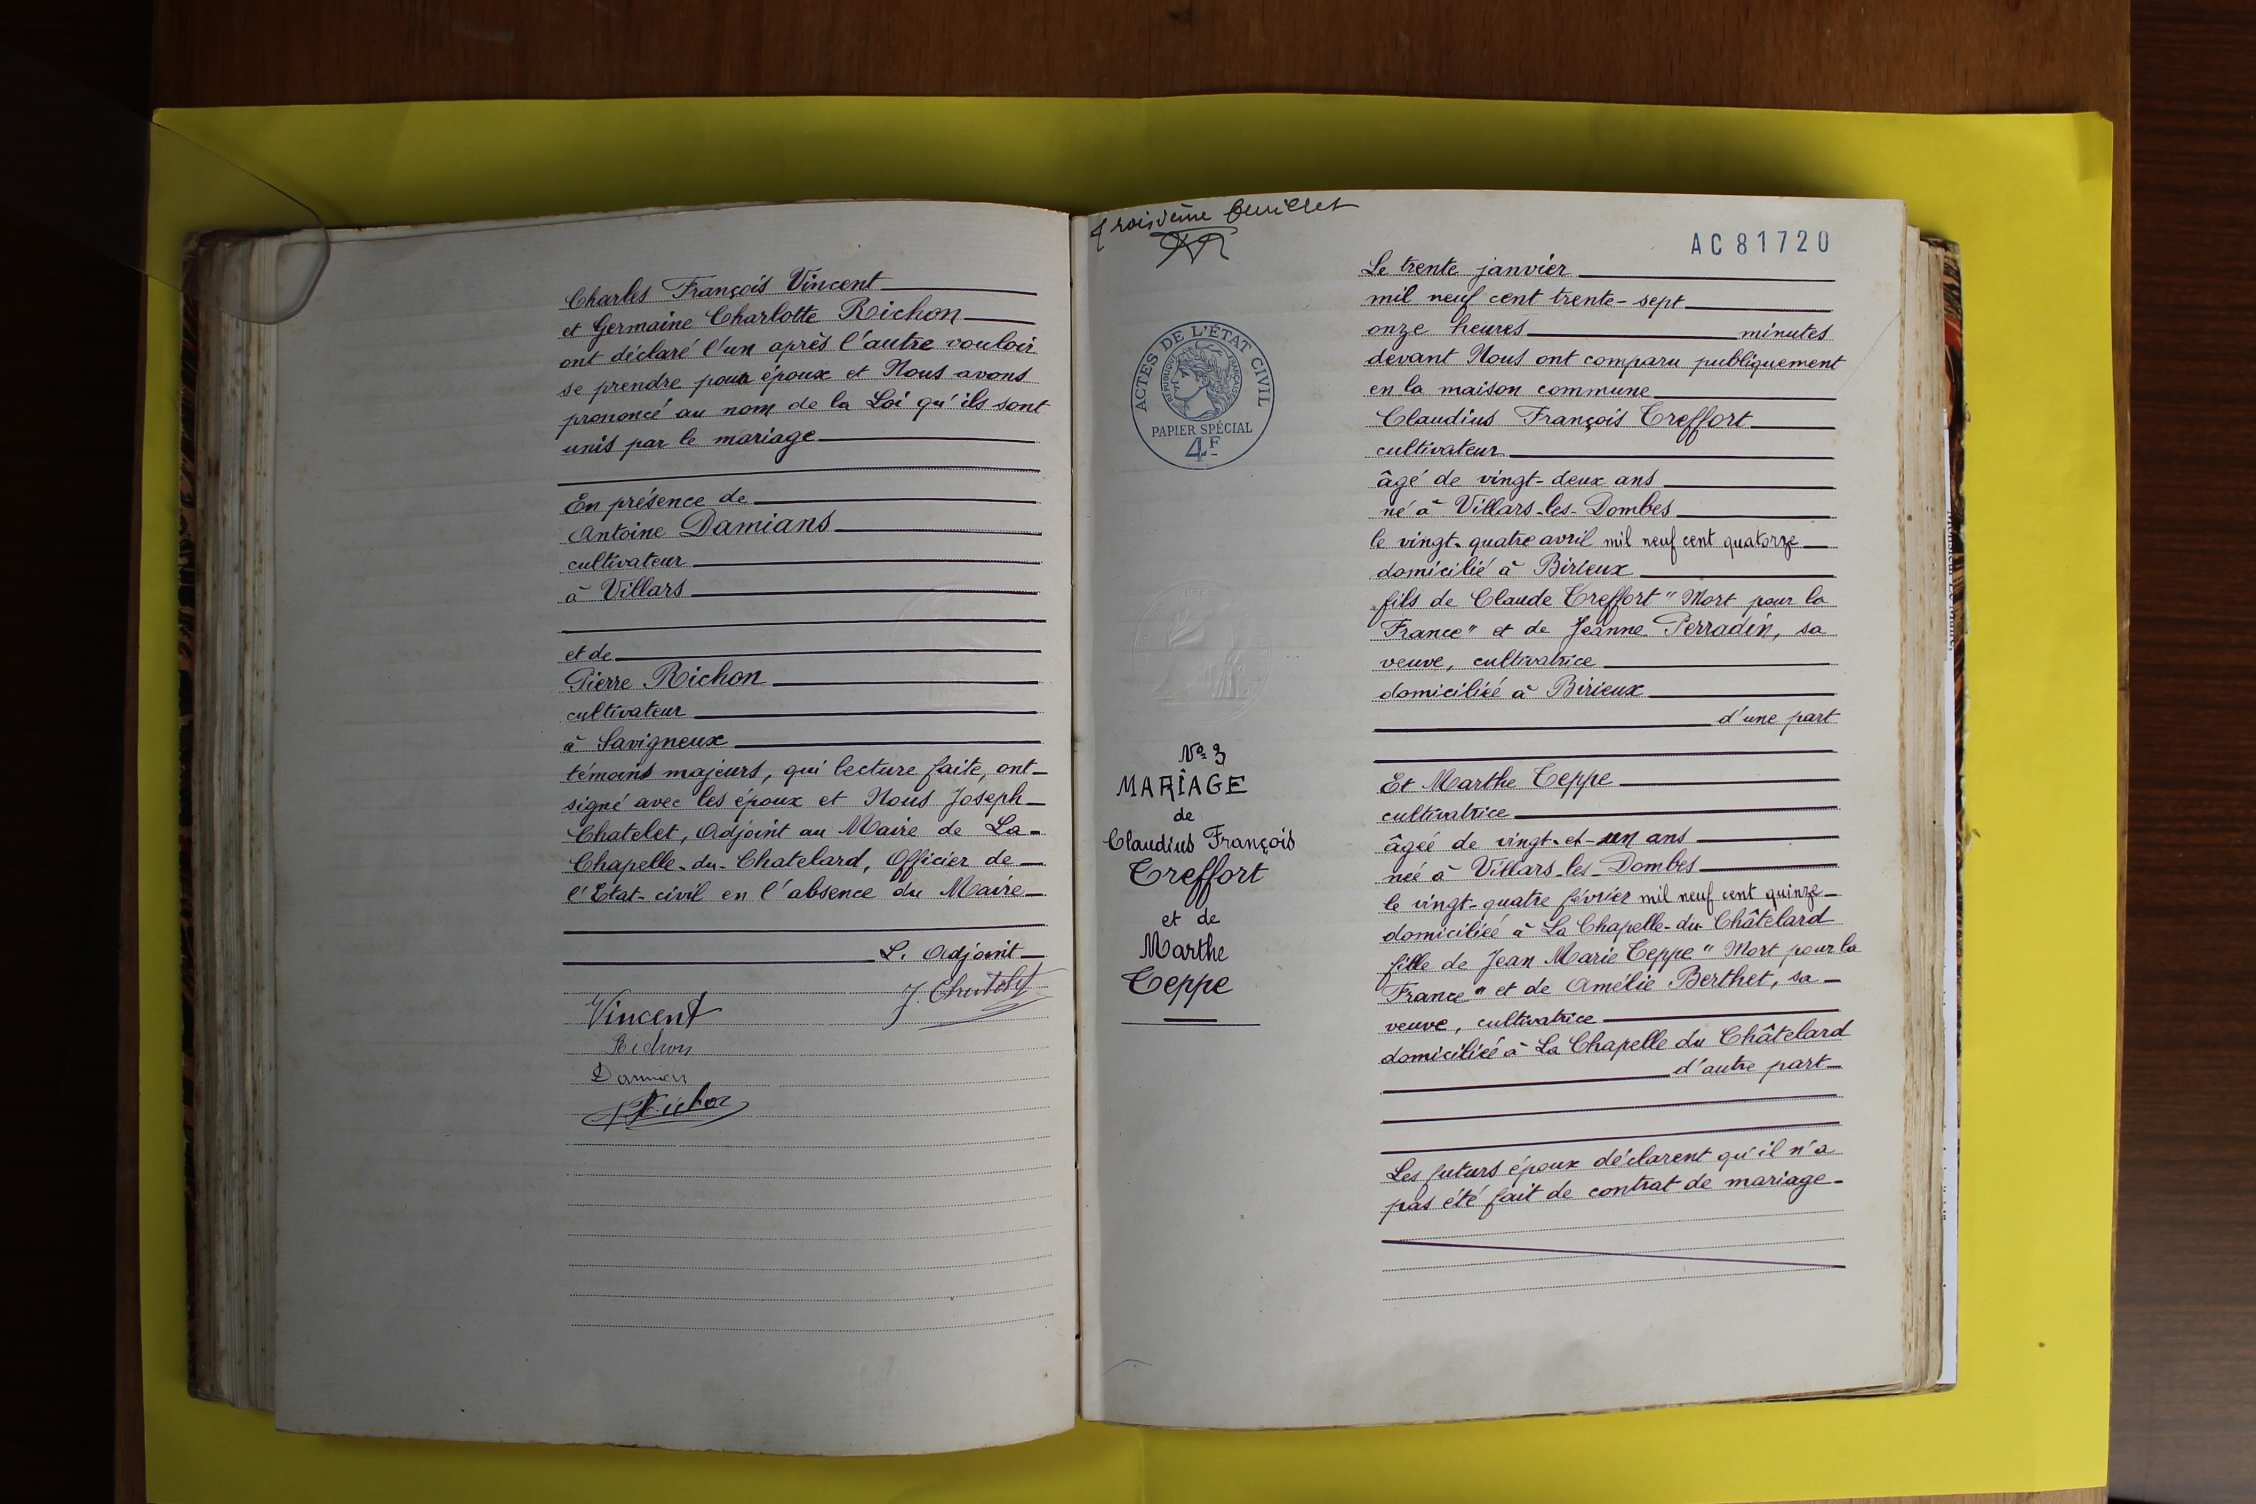 Charles François Vincent
et Germaine Charlotte Richon
ont déclaré l'un après l'autre vouloir
se prendre pour époux et Nous avons
prononcé au nom de la Loi qu'ils sont
unis par le mariage
En présence de
Antoine Damians
cultivateur
à Villars
et de
Pierre Richon
cultivateur
à Savigneux
témoins majeurs, qui lecture faite, ont
signé avec les époux et Nous Joseph
Chatelet, Adjoint au Maire de La
Chapelle-du-Chatelard, Officier de
l'Etat-civil en l'absence du Maire
L. Adjoint
J. Chatelet
Vincent
Richon
Damians
Richon
troisième feuillet
AC 81720
ACTES DE L'ÉTAT CIVIL
RÉPUBLIQUE FRANÇAISE
PAPIER SPÉCIAL
4F
No 3
MARIAGE
de
Claudius François
Treffort
et de
Marthe
Teppe
Le trente janvier
mil neuf cent trente-sept
onze heures minutes
devant Nous ont comparu publiquement
en la maison commune
Claudius François Treffort
cultivateur
âgé de vingt-deux ans
né à Villars-les-Dombes
le vingt-quatre avril mil neuf cent quatorze
domicilié à Birieux
fils de Claude Treffort "Mort pour la
France" et de Jeanne Perradin, sa
veuve, cultivatrice
domiciliée à Birieux
d'une part
Et Marthe Teppe
cultivatrice
âgée de vingt-et-un ans
née à Villars-les-Dombes
le vingt-quatre février mil neuf cent quinze
domiciliée à La Chapelle-du-Châtelard
fille de Jean Marie Teppe "Mort pour la
France" et de Amélie Berthet, sa
veuve, cultivatrice
domiciliée à La Chapelle du Châtelard
d'autre part
Les futurs époux déclarent qu'il n'a
pas été fait de contrat de mariage